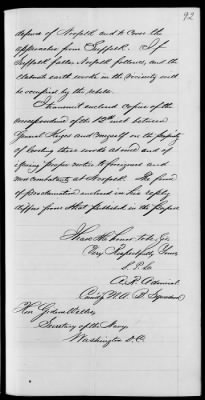 92
defence of Norfolk and to cover the
approaches from Suffolk. If
Suffolk falls Norfolk follows, and the
elaborate earth works in the vicinity will
be occupied by the rebels.
I transmit enclosed copies of the
correspondence of the 12th inst between
General Keyes and myself on the propriety
of leaving these works as used and of
giving proper notice to foreigners and
non combatants at Norfolk. The form
of proclamation enclosed in his reply
differs from that published in the papers
I have the honor to be Sir
Very Respectfully Yours
S. P. Lee
A. R. Admiral
Comd'g N. A. B. Squadron
Hon Gideon Welles,
Secretary of the Navy,
Washington D.C.